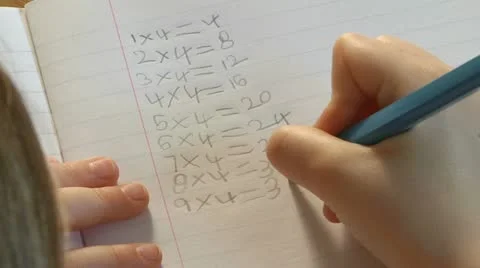 1×4=4
2×4=8
3×4=12
4×4=16
5×4=20
6×4=24
7×4=2
8×4=3
9×4=3